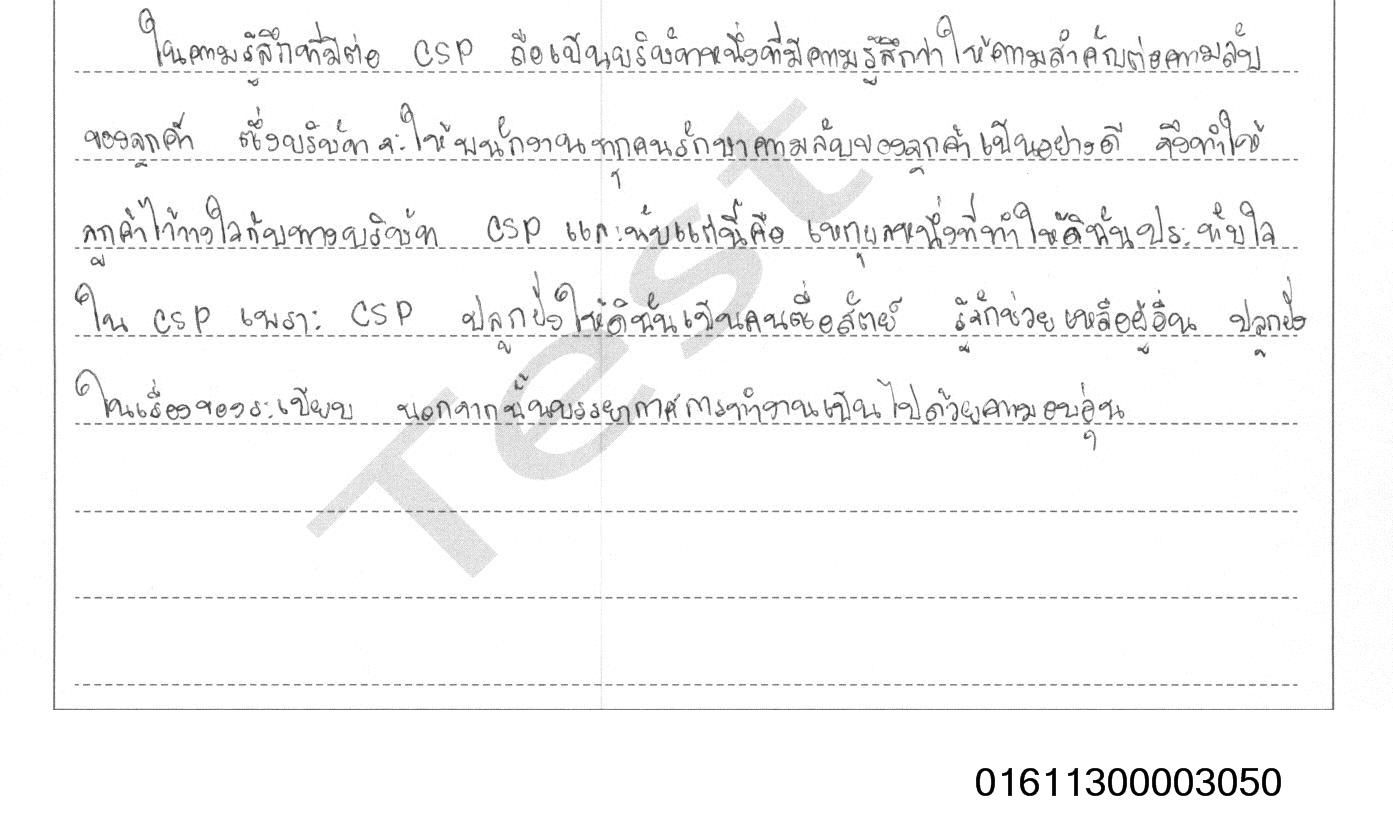 ในความรู้สึกที่มีต่อ CSP ถือเป็นบริษัทหนึ่งที่มีความรู้สึกว่าให้ความสำคัญต่อความลับ
ของลูกค้า ซึ่งบริษัทจะให้พนักงานทุกคนรักษาความลับของลูกค้าเป็นอย่างดี จึงทำให้
ลูกค้าไว้วางใจกับทางบริษัท CSP และนับแต่นี้คือ เหตุผลหนึ่งที่ทำให้ดิฉันประทับใจ
ใน CSP เพราะ CSP ปลูกฝังให้ดิฉันเป็นคนซื่อสัตย์ รู้จักช่วยเหลือผู้อื่น ปลูกฝัง
ในเรื่องของระเบียบ นอกจากนั้นบรรยากาศการทำงานเป็นไปด้วยความอบอุ่น
Test
01611300003050